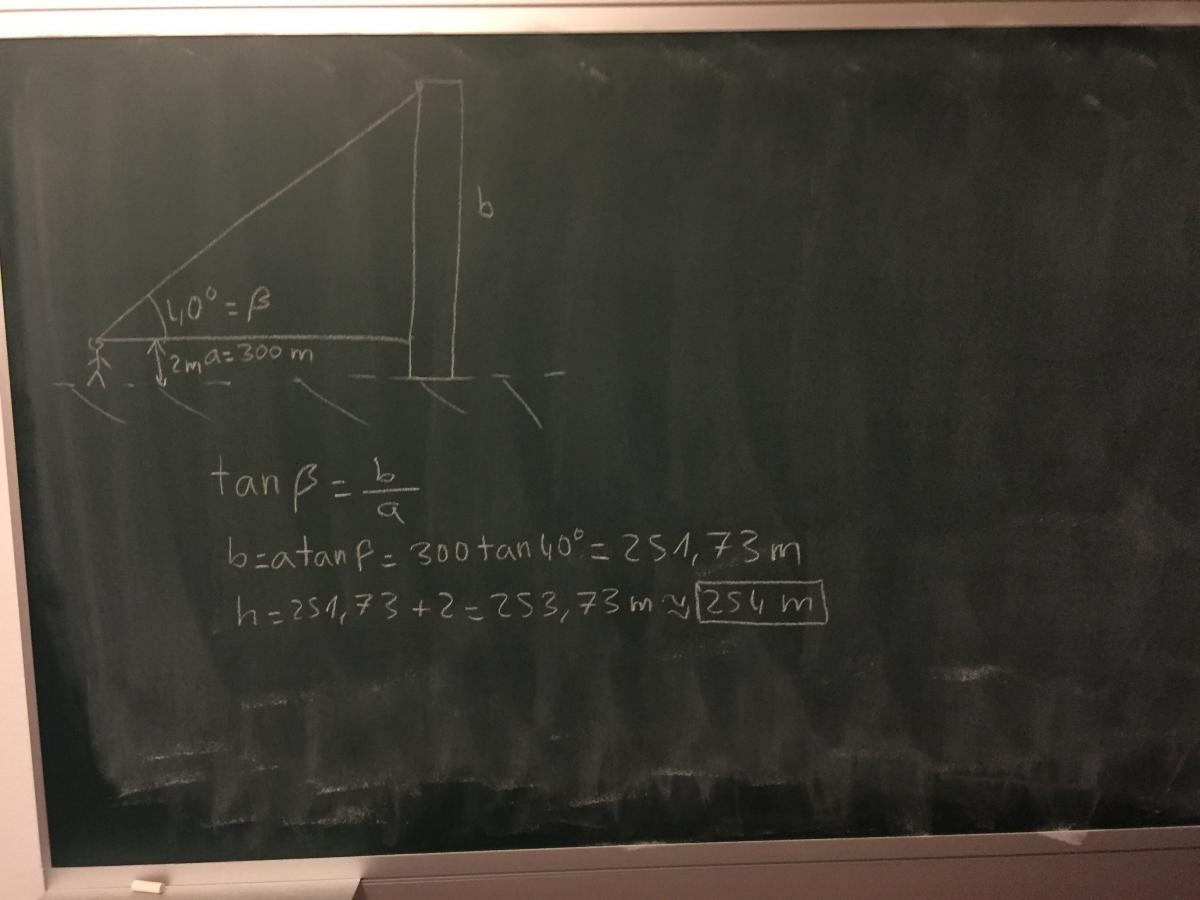 b
40° = β
2m a=300 m
tan β = b/a
b=a tan β = 300 tan 40° = 251,73 m
h = 251,73 + 2 = 253,73 m ≈ 254 m